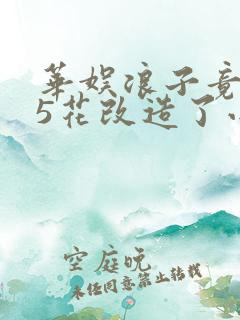 華娱浪子竟
5花改造了.
空庭晚
未经同意禁止转载